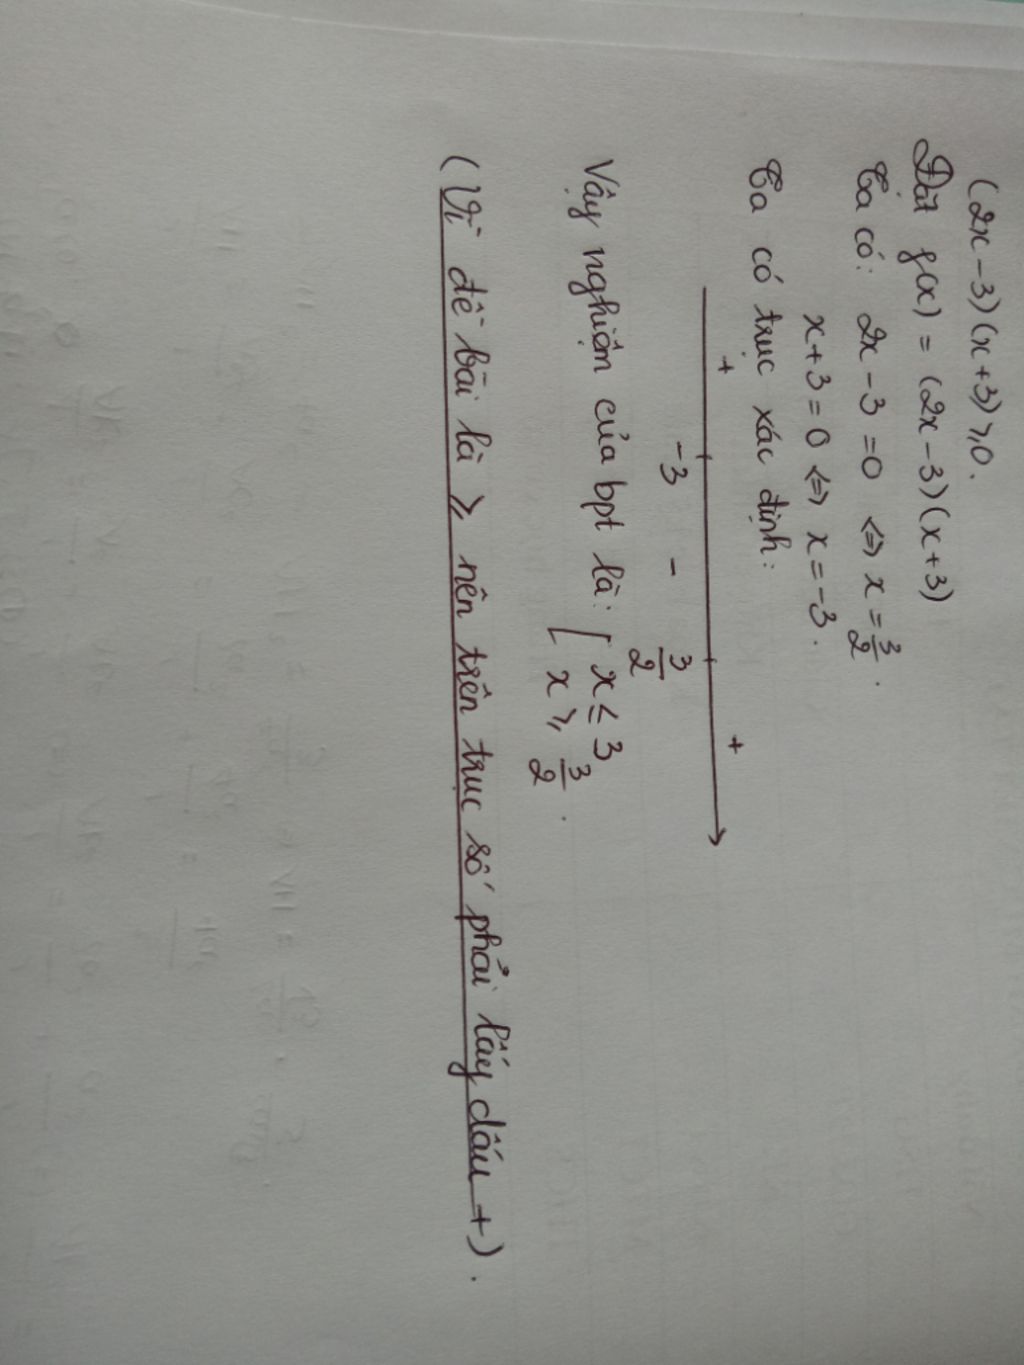 (2x-3)(x+3) ⩾ 0.
Đặt f(x) = (2x-3)(x+3)
Ta có: 2x-3=0 ⇔ x = 3/2.
x+3=0 ⇔ x=-3.
Ta có trục xác định:
+ -3 - 3/2 +
Vậy nghiệm của bpt là: [ x ≤ 3
x ⩾ 3/2.
(Vì đề bài là ⩾ nên trên trục số phải lấy dấu +).